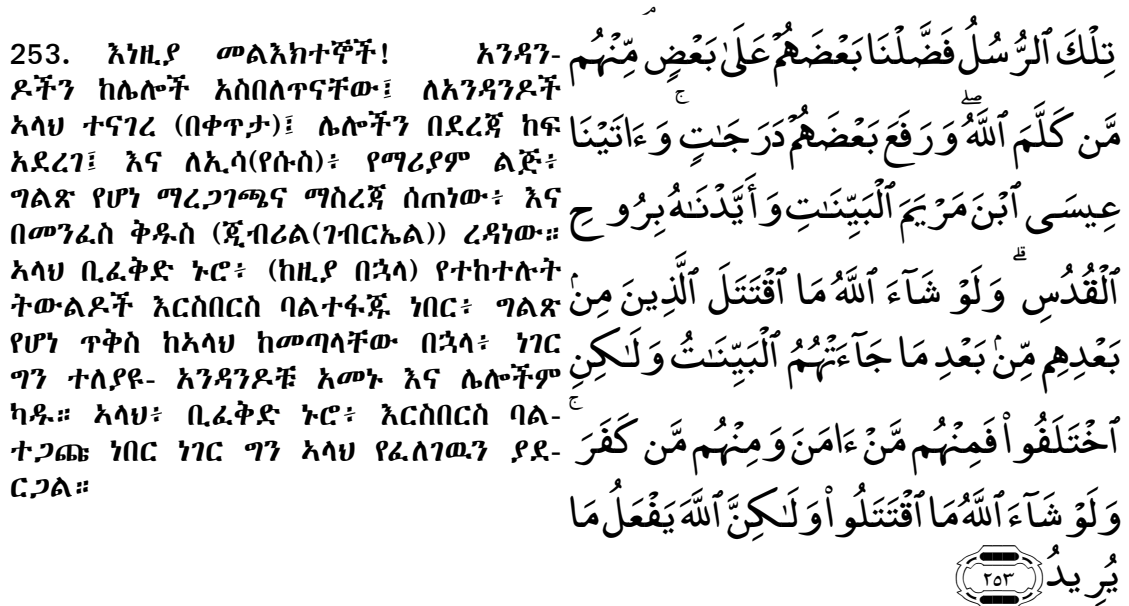 253. እነዚያ መልእክተኞች! አንዳን-
ዶችን ከሌሎች አስበለጥናቸው፤ ለአንዳንዶች
ኣላህ ተናገረ (በቀጥታ)፤ ሌሎችን በደረጃ ከፍ
አደረገ፤ እና ለኢሳ(የሱስ)፥ የማሪያም ልጅ፥
ግልጽ የሆነ ማረጋገጫና ማስረጃ ሰጠነው፥ እና
በመንፈስ ቅዱስ (ጂብሪል(ገብርኤል)) ረዳነው።
ኣላህ ቢፈቅድ ኑሮ፥ (ከዚያ በኋላ) የተከተሉት
ትውልዶች እርስበርስ ባልተፋጁ ነበር፥ ግልጽ
የሆነ ጥቅስ ከኣላህ ከመጣላቸው በኋላ፥ ነገር
ግን ተለያዩ- አንዳንዶቹ አመኑ እና ሌሎችም
ካዱ። ኣላህ፥ ቢፈቅድ ኑሮ፥ እርስበርስ ባል-
ተጋጩ ነበር ነገር ግን ኣላህ የፈለገዉን ያደ-
ርጋል።
تِلْكَ ٱلرُّسُلُ فَضَّلْنَا بَعْضَهُمْ عَلَىٰ بَعْضٍ ۘ مِّنْهُم
مَّن كَلَّمَ ٱللَّهُ ۖ وَرَفَعَ بَعْضَهُمْ دَرَجَٰتٍ ۚ وَءَاتَيْنَا
عِيسَى ٱبْنَ مَرْيَمَ ٱلْبَيِّنَٰتِ وَأَيَّدْنَٰهُ بِرُوحِ
ٱلْقُدُسِ ۗ وَلَوْ شَآءَ ٱللَّهُ مَا ٱقْتَتَلَ ٱلَّذِينَ مِنۢ
بَعْدِهِم مِّنۢ بَعْدِ مَا جَآءَتْهُمُ ٱلْبَيِّنَٰتُ وَلَٰكِنِ
ٱخْتَلَفُوا۟ فَمِنْهُم مَّنْ ءَامَنَ وَمِنْهُم مَّن كَفَرَ ۚ
وَلَوْ شَآءَ ٱللَّهُ مَا ٱقْتَتَلُوا۟ وَلَٰكِنَّ ٱللَّهَ يَفْعَلُ مَا
يُرِيدُ ٢٥٣